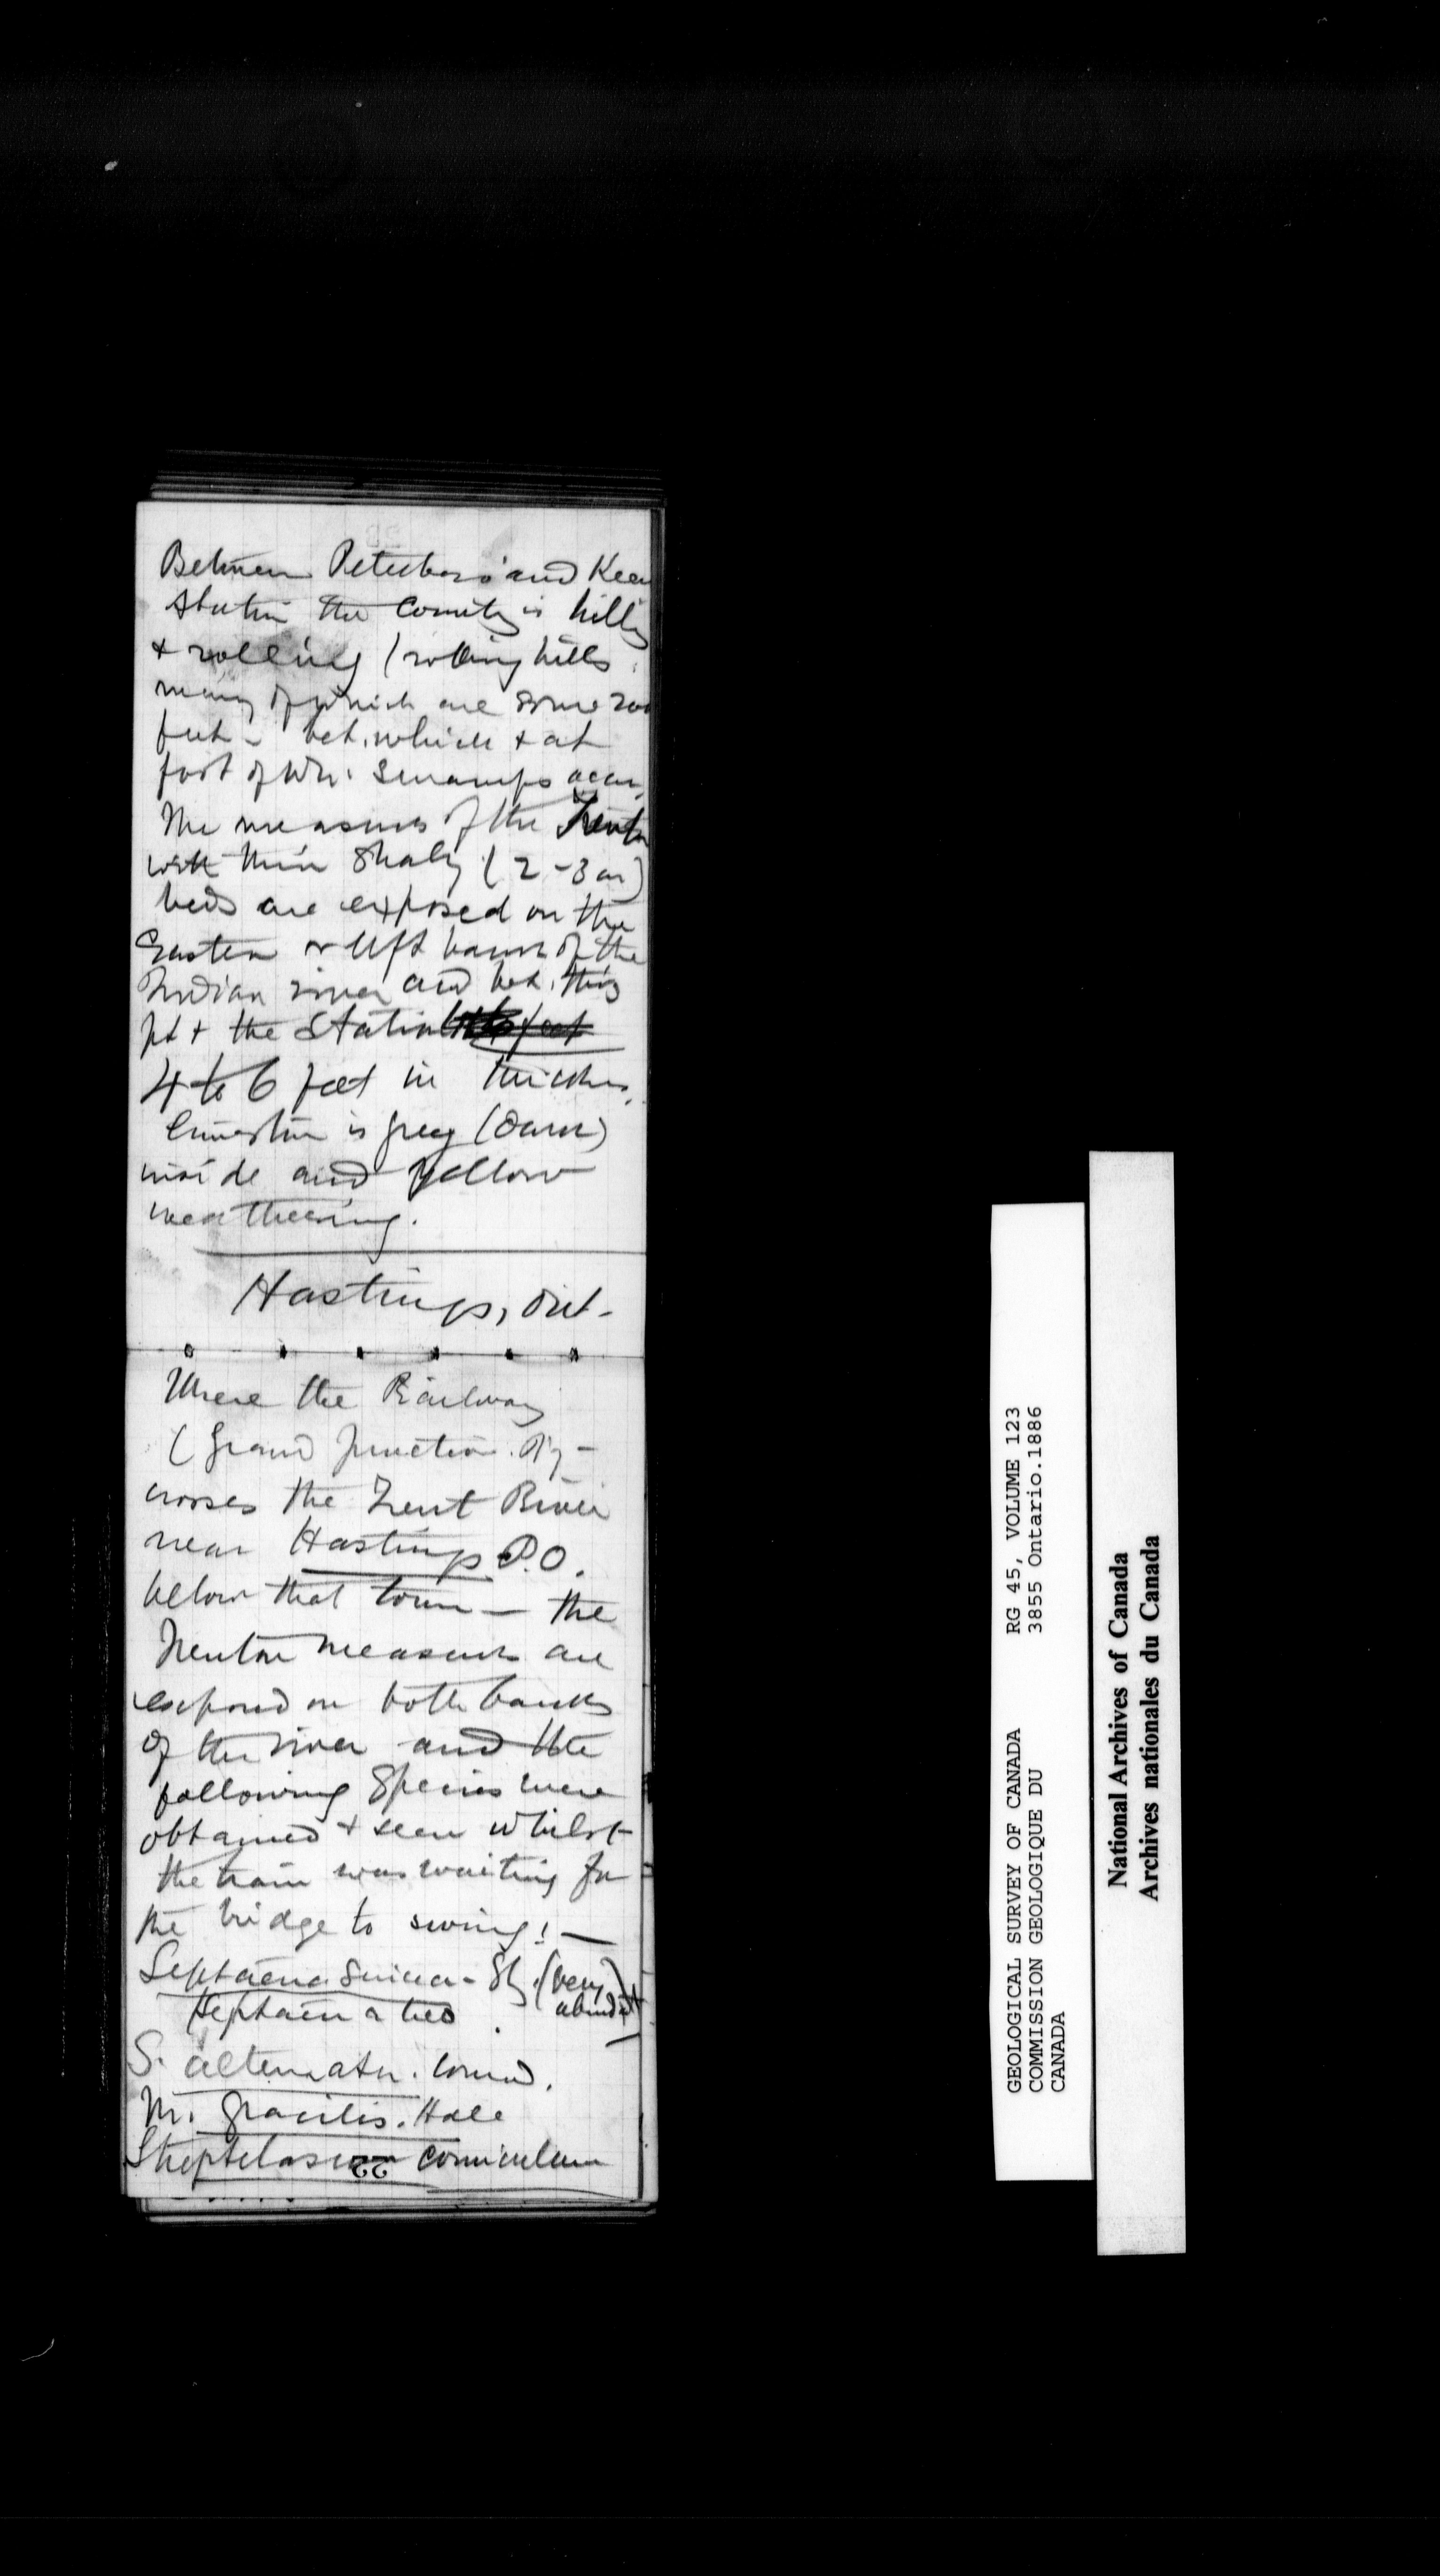 Between Peterboro' and Keen
Station the County is hilly
& rolling (rolling hills
many of which are some 200
feet - bet. which & at
foot of wh. swamps occur.
The measures of the Trenton
with thin Shaly (2-3 in)
beds are exposed on the
Eastern or left bank of the
Indian river and bet. this
pt & the Station
4 to 6 feet in thickns.
limestone is grey (dark)
inside and yellow
weathering.
Hastings, Ont-
Where the Railway
(Grand Junction Ry-
crosses the Trent River
near Hastings P.O.
below that town — the
Trenton measures are
exposed on both banks
of the river and the
following Species were
obtained & seen whilst
the train was waiting for
the bridge to swing! —
Leptaena sericea - Sby. (very
abundant)
S. alternata. Conrad.
M. gracilis. Hall
Streptelasma corniculum
22
GEOLOGICAL SURVEY OF CANADA RG 45, VOLUME 123
COMMISSION GEOLOGIQUE DU 3855 Ontario.1886
CANADA
National Archives of Canada
Archives nationales du Canada